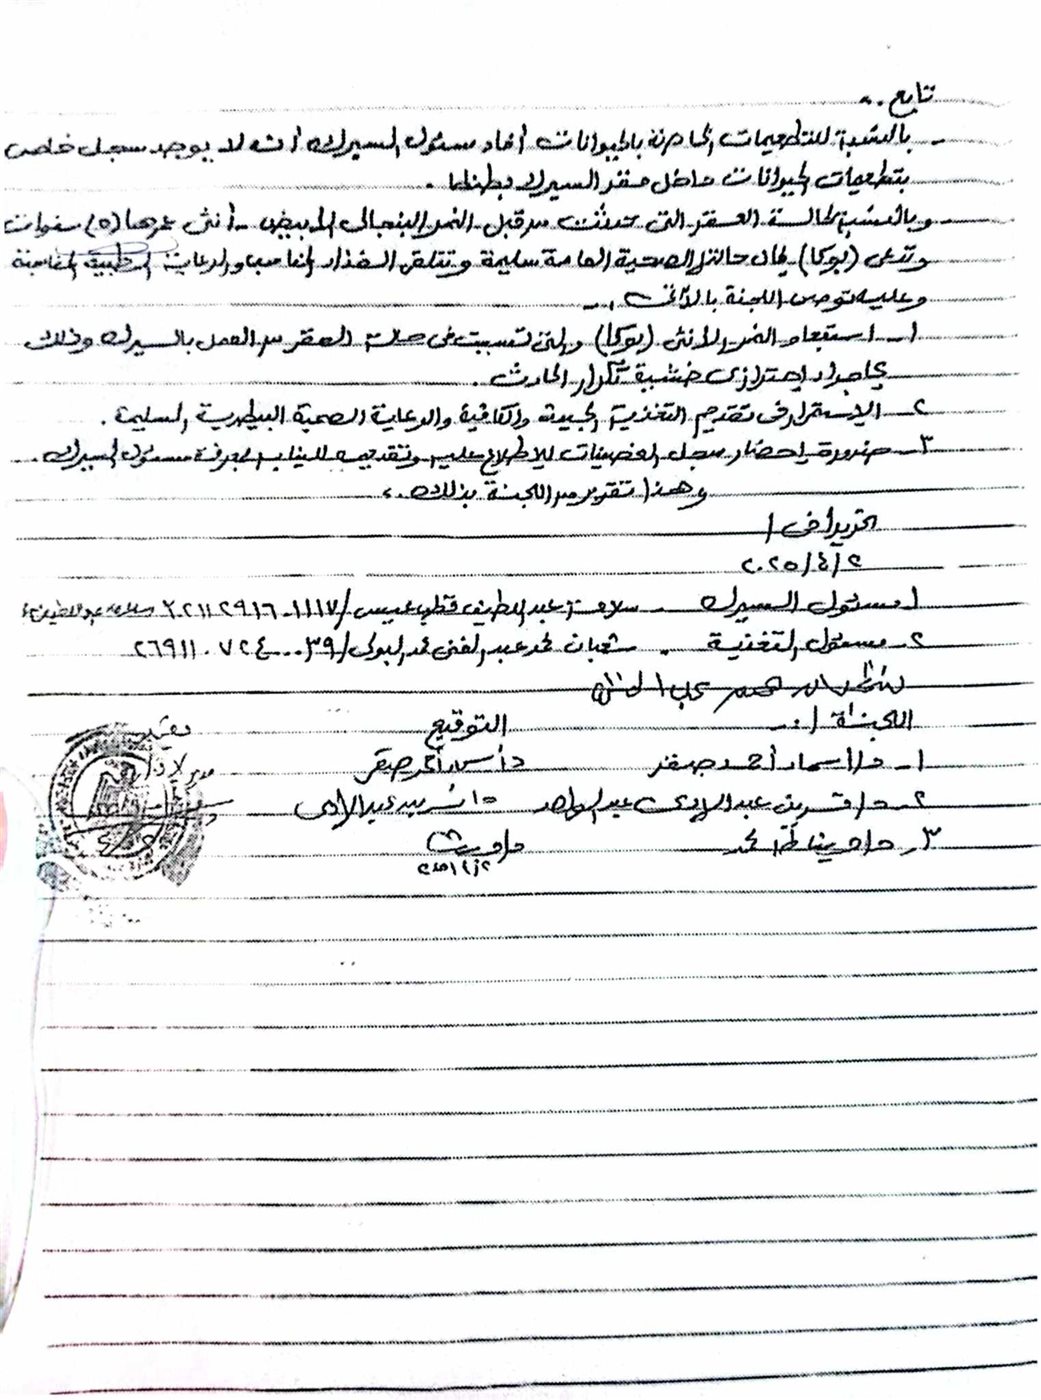 تابع ..
- بالنسبة للتطعيمات الخاصة بالحيوانات أفاد مسئول السيرك أنه لا يوجد سجل خاص
بتطعيمات الحيوانات داخل مقر السيرك بطنطا .
وبالنسبة لحالة العقر التى حدثت من قبل النمر البنجالى الأبيض - أنثى عمرها (٥) سنوات
وتدعى (بوكا) فإن حالتها الصحية العامة سليمة وتتلقى الغذاء المناسب والرعاية الطبية المناسبة
وعليه توصى اللجنة بالآتى :-
١- استبعاد النمر الأنثى (بوكا) والتى تسببت فى حالة العقر من العمل بالسيرك وذلك
كإجراء إحترازى خشية تكرار الحادث .
٢- الإستمرار فى تقديم التغذية الجيدة والكافية والرعاية الصحية البيطرية السليمة .
٣- ضرورة إحضار سجل التحصينات للإطلاع عليه وتقديمه للنيابة بمعرفة مسئول السيرك .
وهذا تقرير من اللجنة بذلك ..
تحريراً فى /
٢ / ٤ / ٢٠٢٥
١- مسئول السيرك - سلامة عبد اللطيف قطب عيسى /
٢- مسئول التغذية - شعبان محمد عبد الغنى محمد /٢٦٩١١٠٧٢٤٠٠٠٣٩
اللجنة / التوقيع
١- د/ أسماء أحمد صقر د/ أسماء أحمد صقر
٢- د/ عبد الهادى عبد الواحد د/ عبد الهادى
٣- د/ دينا محمد د/ دينا
يعتمد
مدير الإدارة